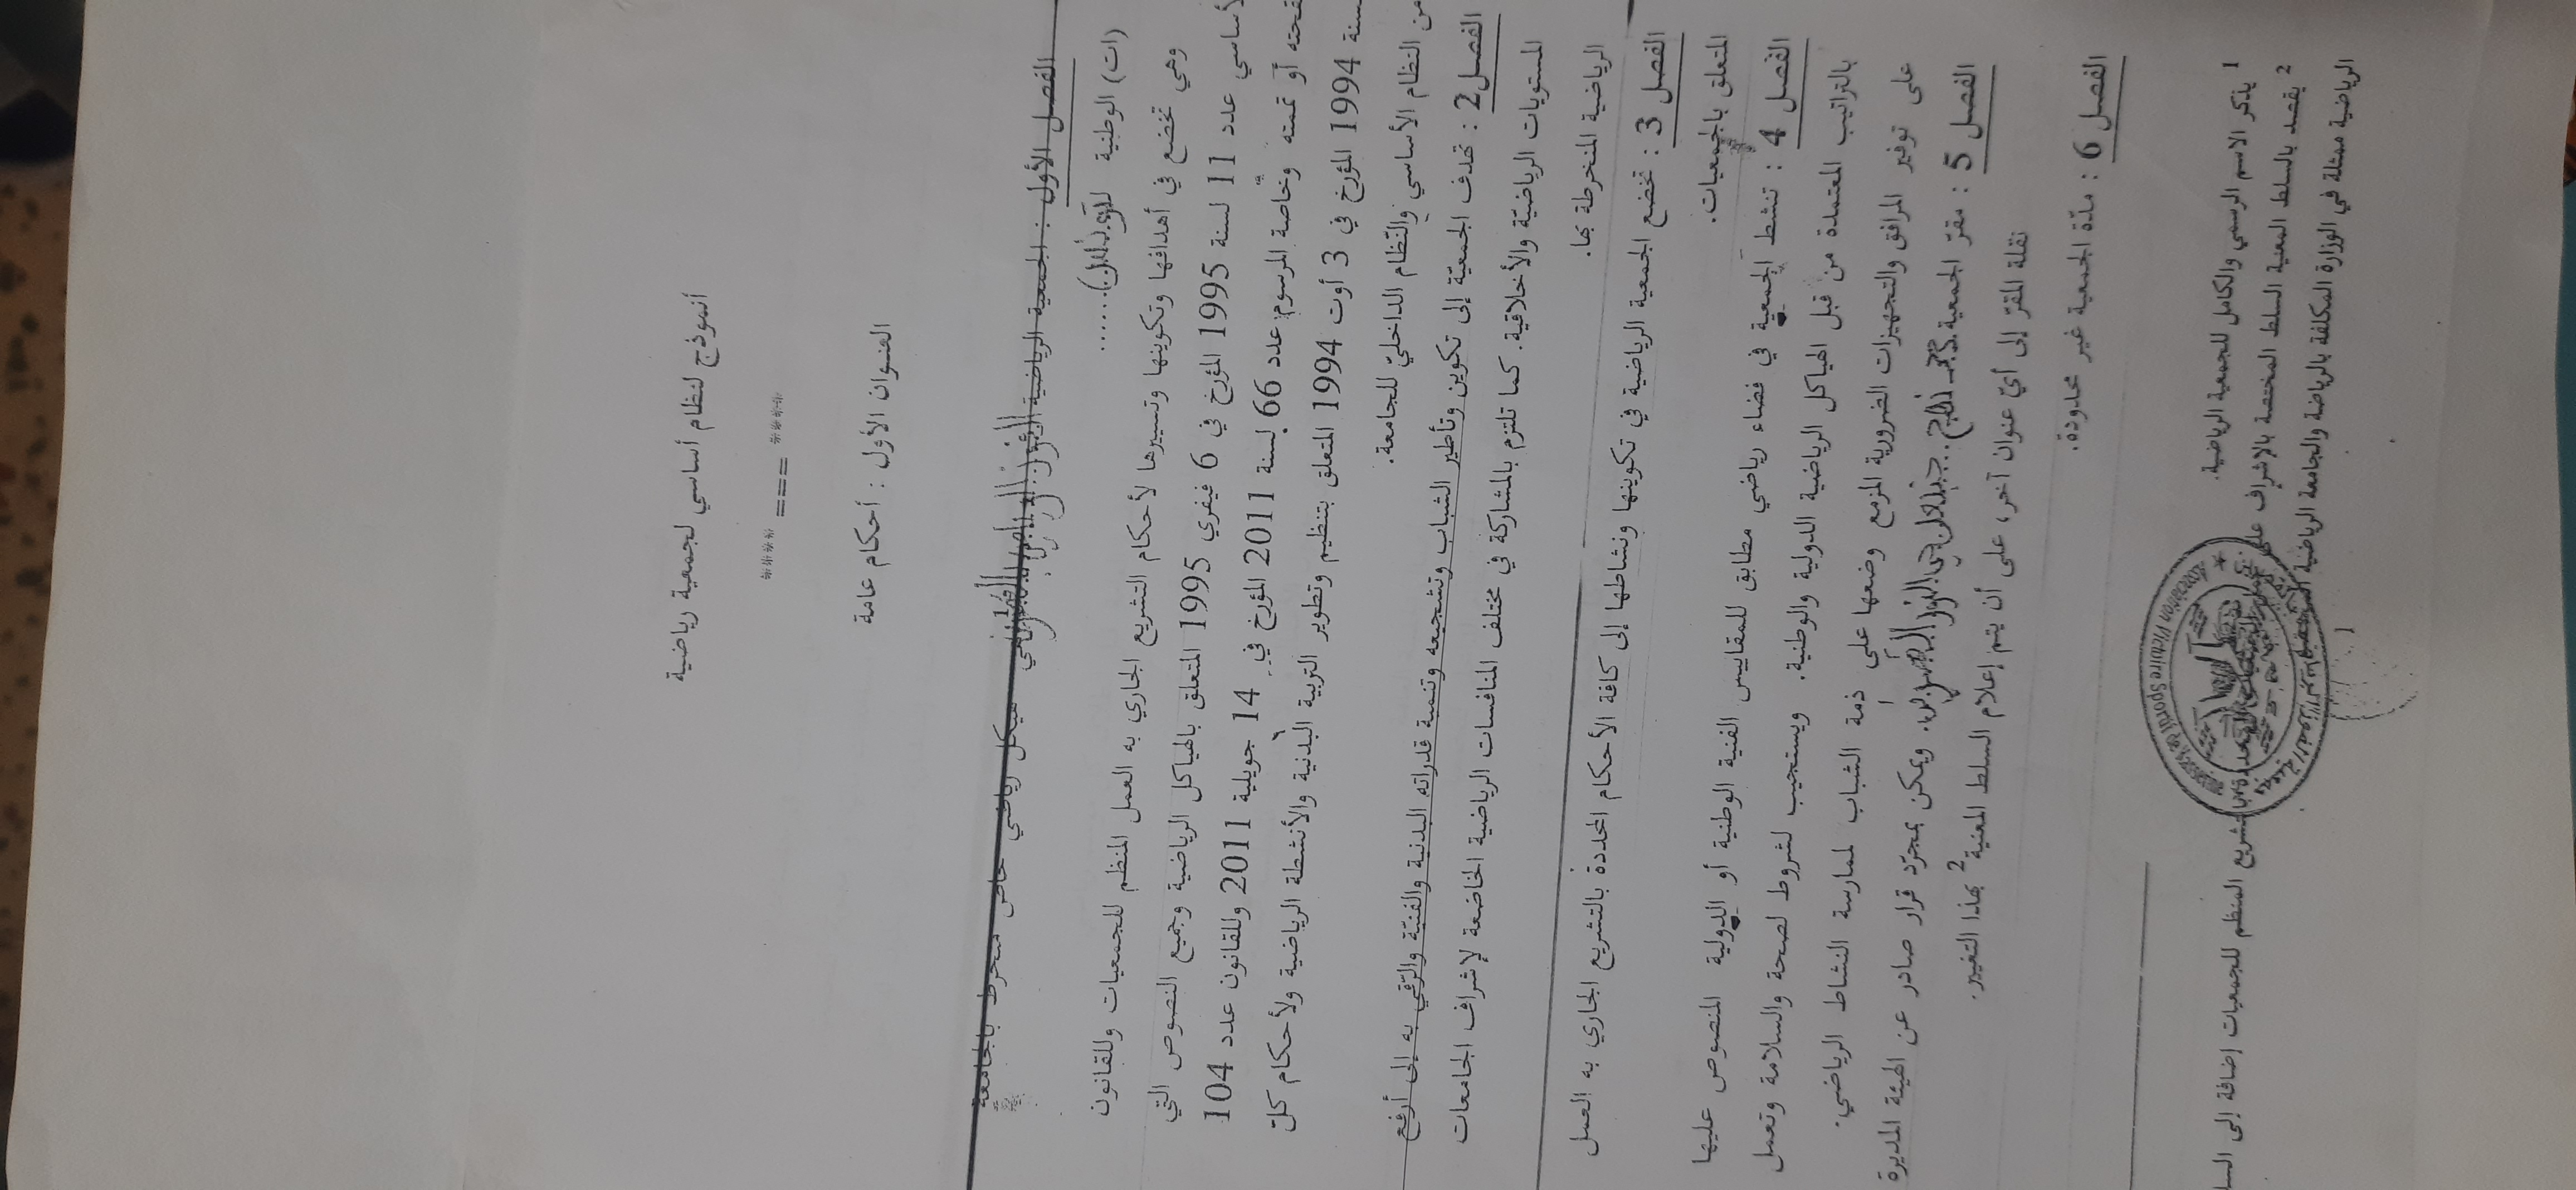 أنموذج لنظام أساسي لجمعية رياضية
**** ==== ****
العنوان الأول : أحكام عامة
الفصل الأول : الجمعية الرياضية هيكل رياضي خاص منخرط بالجامعة
(ات) الوطنية ...... وهي تخضع في أهدافها وتكوينها وتسييرها لأحكام التشريع الجاري به العمل المنظم للجمعيات وللقانون
أساسي عدد 11 لسنة 1995 المؤرخ في 6 فيفري 1995 المتعلق بالهياكل الرياضية وجميع النصوص التي
نقحته أو تممته وخاصة المرسوم عدد 66 لسنة 2011 المؤرخ في 14 جويلية 2011 وللقانون عدد 104
سنة 1994 المؤرخ في 3 أوت 1994 المتعلق بتنظيم وتطوير التربية البدنية والأنشطة الرياضية ولأحكام كل
من النظام الأساسي والنظام الداخليّ للجامعة.
الفصل 2 : تهدف الجمعيّة إلى تكوين وتأطير الشباب وتشجيعه وتنمية قدراته البدنية والفنيّة والرّقي به إلى أرفع
المستويات الرياضيّة والأخلاقية. كما تلتزم بالمشاركة في مختلف المنافسات الرياضية الخاضعة لإشراف الجامعات
الرياضية المنخرطة بها.
الفصل 3 : تخضع الجمعية الرياضية في تكوينها ونشاطها إلى كافة الأحكام المحددة بالتشريع الجاري به العمل
المتعلق بالجمعيات.
الفصل 4 : تنشط الجمعية في فضاء رياضي مطابق للمقاييس الفنية الوطنية أو الدولية المنصوص عليها
بالتراتيب المعتمدة من قبل الهياكل الرياضية الدولية والوطنية. ويستجيب لشروط لصحة والسلامة وتعمل
على توفير المرافق والتجهيزات الضرورية المزمع وضعها على ذمة الشباب لممارسة النشاط الرياضي.
الفصل 5 : مقرّ الجمعية نهج ويمكن بمجرّد قرار صادر عن الهيئة المديرة
نقلة المقرّ إلى أيّ عنوان آخر، على أن يتم إعلام السلط المعنية 2 بهذا التغيير.
الفصل 6 : مدّة الجمعية غير محدودة.
1 يذكر الاسم الرسمي والكامل للجمعية الرياضية.
2 يقصد بالسلط المعنية السلط المختصة بالإشراف على تشريع المنظم للجمعيات إضافة إلى السا
الرياضية ممثلة في الوزارة المكلفة بالرياضة والجامعة الرياضية
1